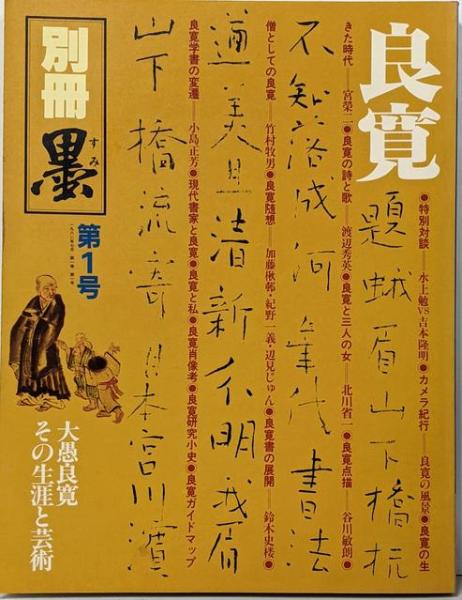 良寛
●特別対談——水上勉vs吉本隆明●カメラ紀行——良寛の風景●良寛の生
題蛾眉山下橋杭
きた時代——宮榮二●良寛の詩と歌——渡辺秀英●良寛と三人の女——北川省一●良寛点描——谷川敏朗●
不知落成何年代書法
僧としての良寛——竹村牧男●良寛随想——加藤楸邨・紀野一義・辺見じゅん●良寛書の展開——鈴木史楼●
遒美且清新分明我眉
良寛学書の変遷——小島正芳●現代書家と良寛●良寛と私●良寛肖像考●良寛研究小史●良寛ガイドマップ
山下橋流寄日本宮川濱
別冊
墨
すみ
第1号
大愚良寛
その生涯と芸術